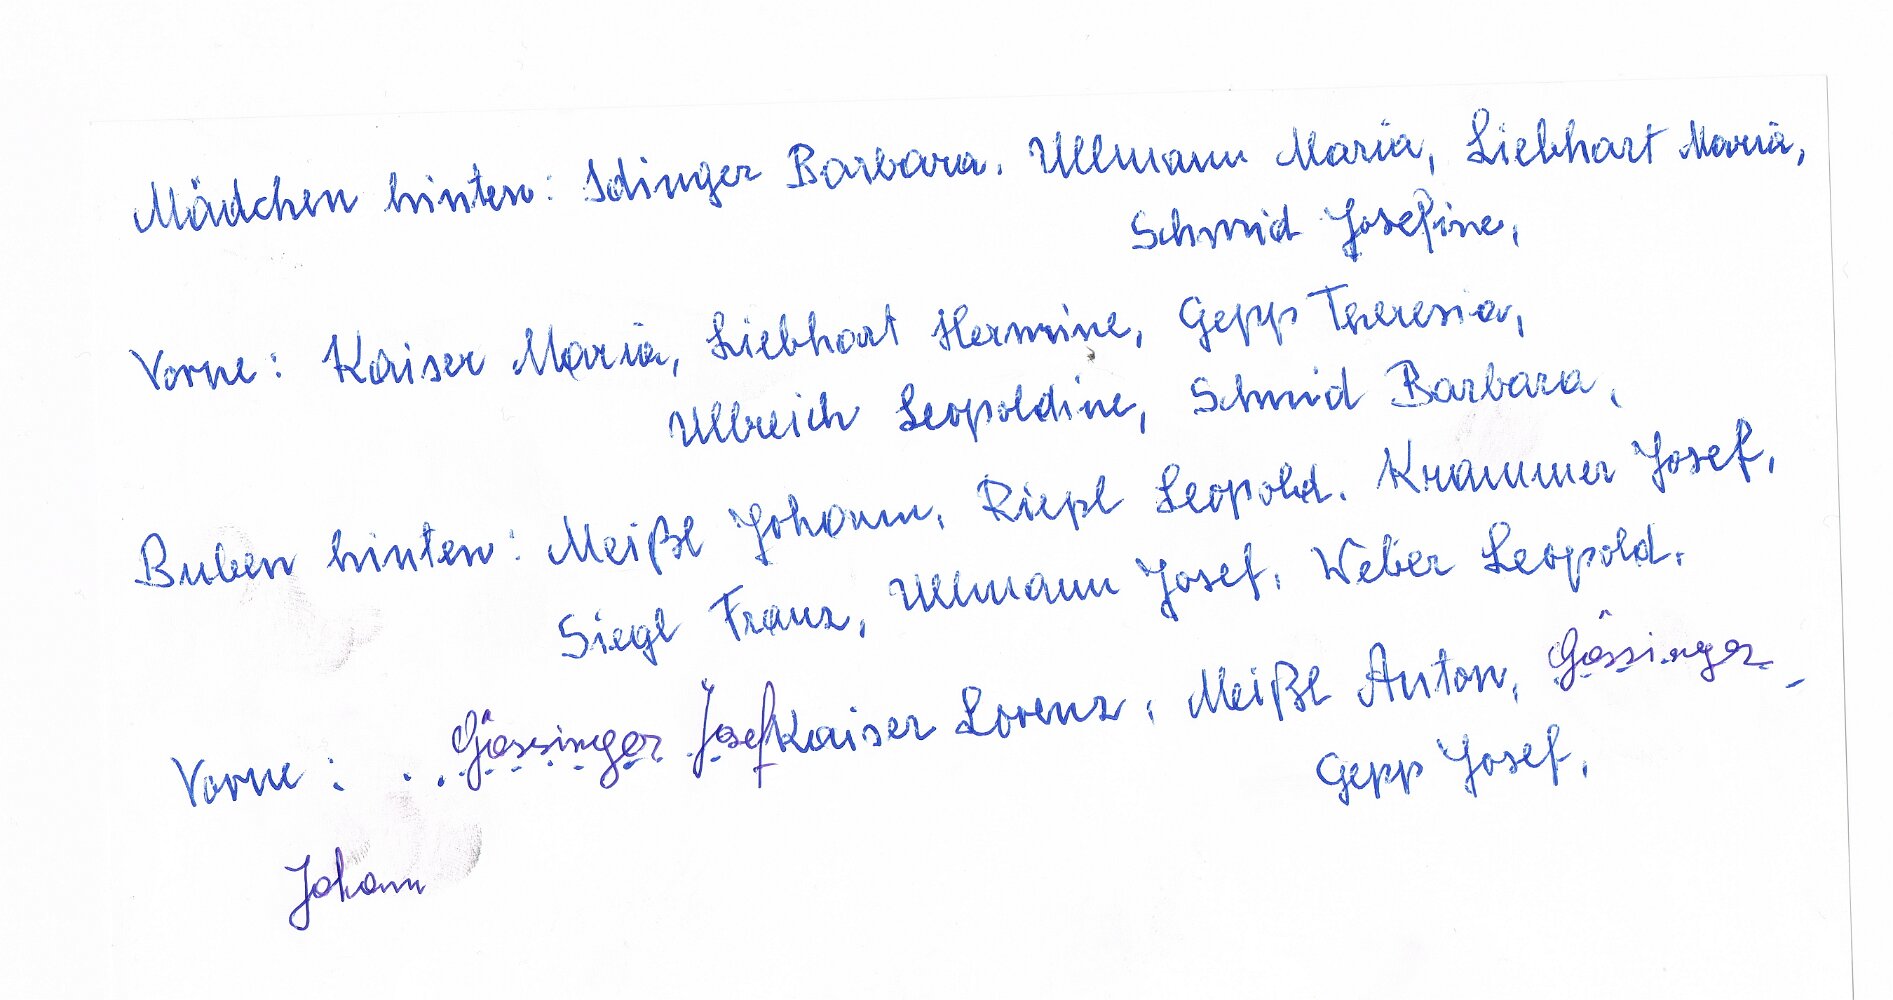 Mädchen hinten: Idinger Barbara. Ullmann Maria, Liebhart Maria,
Schmid Josefine,
Vorne: Kaiser Maria, Liebhart Hermine, Gepp Theresia,
Ullreich Leopoldine, Schmid Barbara,
Buben hinten: Meißl Johann, Riepl Leopold. Krammer Josef,
Siegl Franz, Ullmann Josef, Weber Leopold.
Vorne: .. Gössinger Josef Kaiser Lorenz, Meißl Anton, Gössinger -
Gepp Josef,
Johann